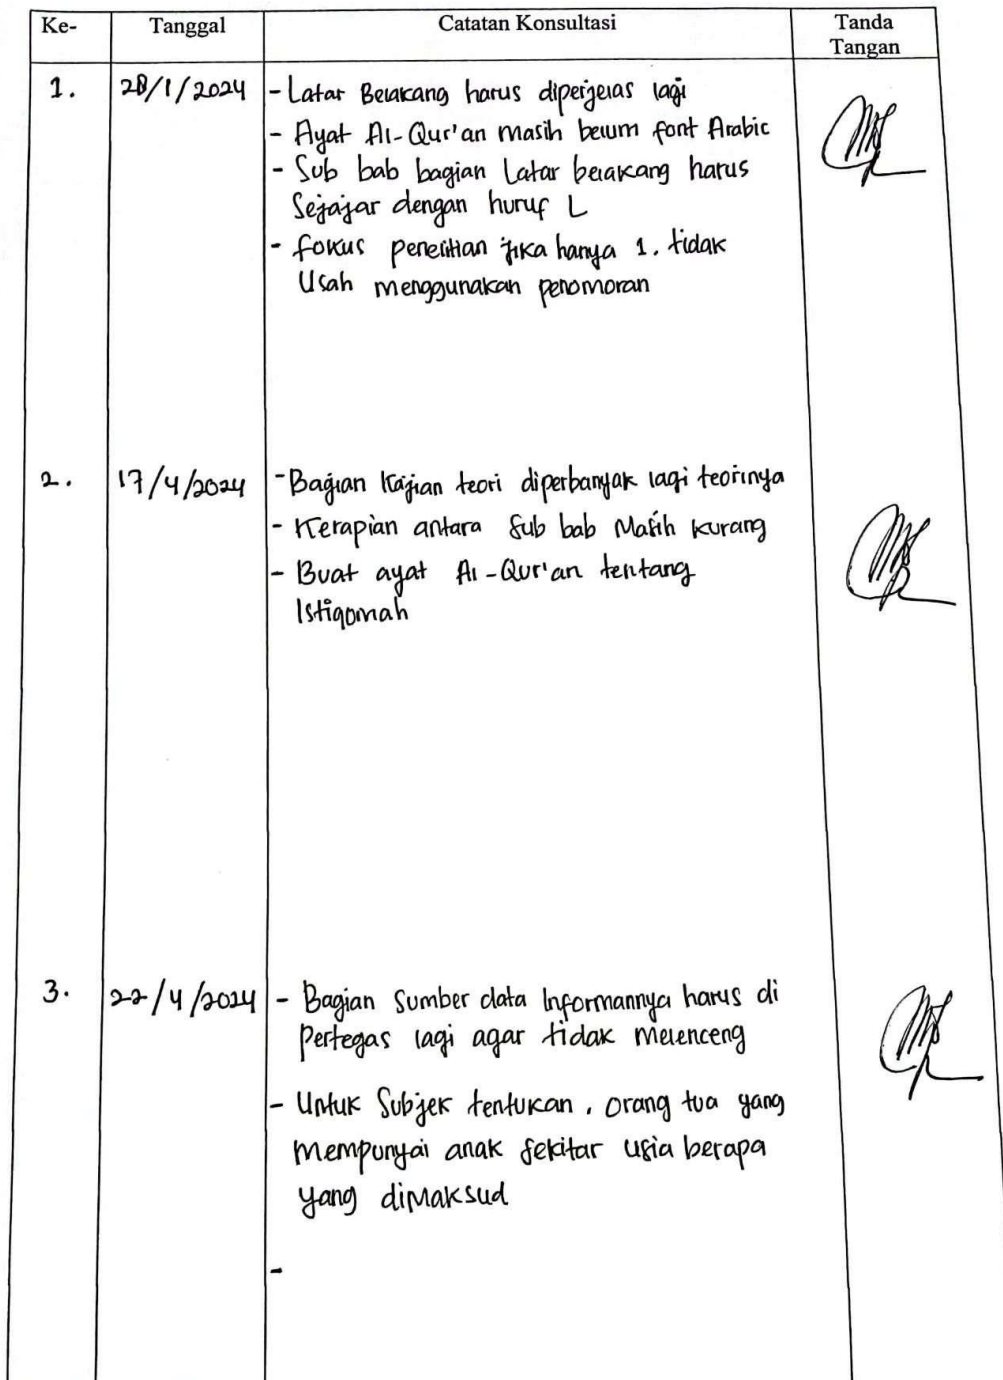 Ke- Tanggal Catatan Konsultasi Tanda
Tangan
1. 28/1/2024 - Latar Belakang harus diperjelas lagi
- Ayat Al-Qur'an masih belum font Arabic
- Sub bab bagian Latar belakang harus
Sejajar dengan huruf L
- fokus penelitian jika hanya 1. tidak
Usah menggunakan penomoran
2. 17/4/2024 - Bagian Kajian teori diperbanyak lagi teorinya
- Kerapian antara Sub bab Masih kurang
- Buat ayat Al-Qur'an tentang
Istiqomah
3. 22/4/2024 - Bagian Sumber data Informannya harus di
Pertegas lagi agar tidak Melenceng
- Untuk Subjek tentukan, orang tua yang
mempunyai anak sekitar usia berapa
yang dimaksud
-